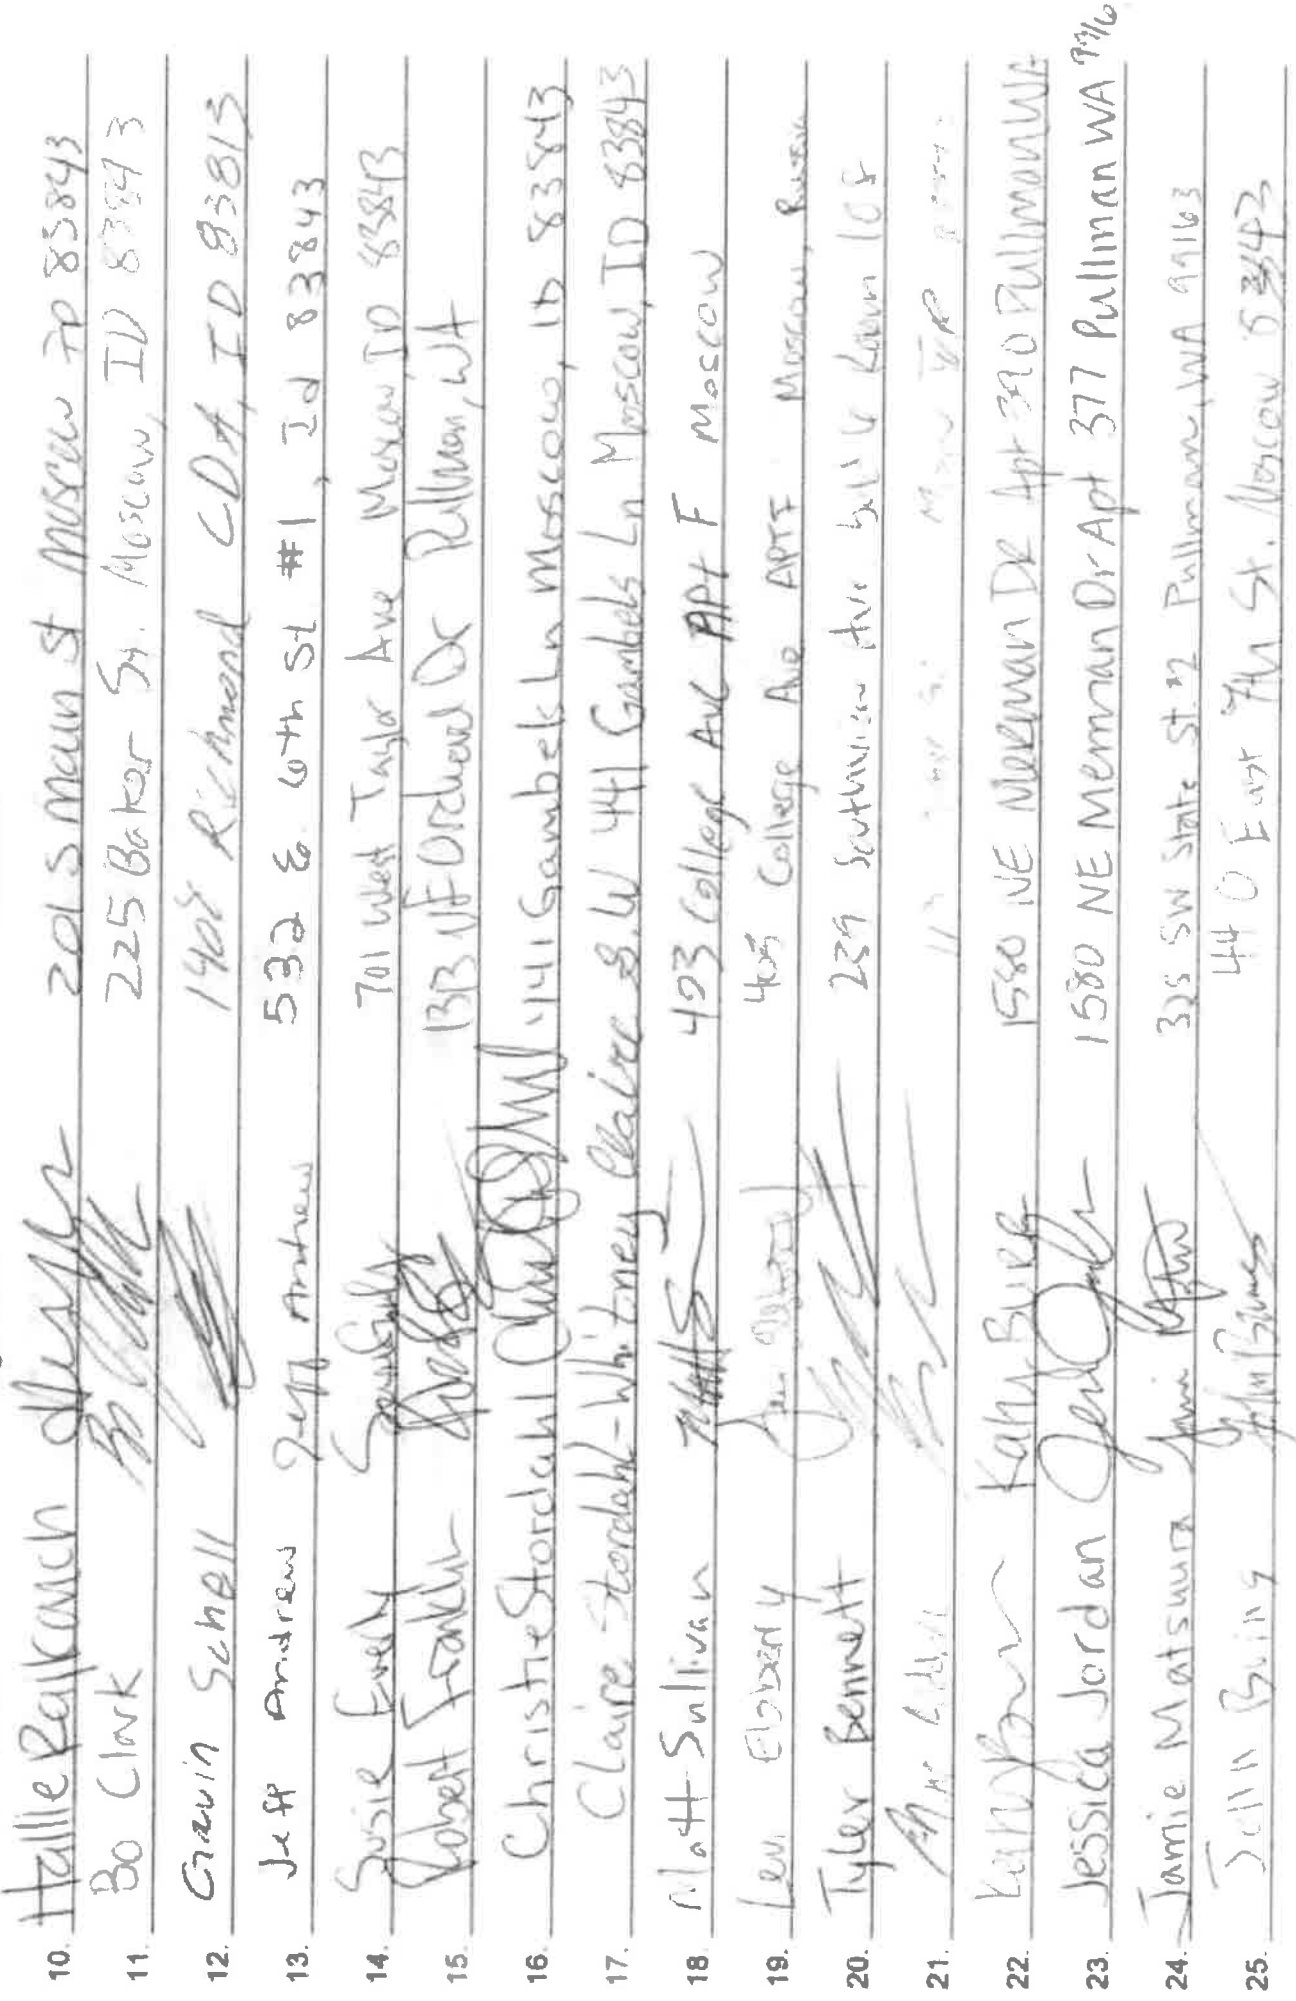 10. Hallie Ralkowch 201 S Main St Moscow ID 83843
11. Bo Clark 225 Baker St. Moscow, ID 83843
12. Gavin Schell 1408 Richmond CDA, ID 83815
13. Jeff Andrews Jeff Andrew 532 E. 6th St #1, Id 83843
14. Susie Everly 701 West Taylor Ave Moscow ID 83843
15. Robert Franklin NE Orchard Dr Pullman, WA
16. Christie Stordahl 441 Gambels Ln Moscow, ID 83843
17. Claire Stordahl-Whitney Claire S.W 441 Gambels Ln Moscow, ID 83843
18. Matt Sullivan 403 College Ave APt F Moscow
19. Levi 403 College Ave APTF Moscow,
20. Tyler Bennett 239 Ave Room 108
21.
22. Katy Burr 1580 NE Merman DR Apt 390 Pullman WA
23. Jessica Jordan 1580 NE Merman Dr Apt 377 Pullman WA
24. Jamie Matsuura 325 SW State St. Pullman, WA 99163
25. John 440 East 7th St. Moscow